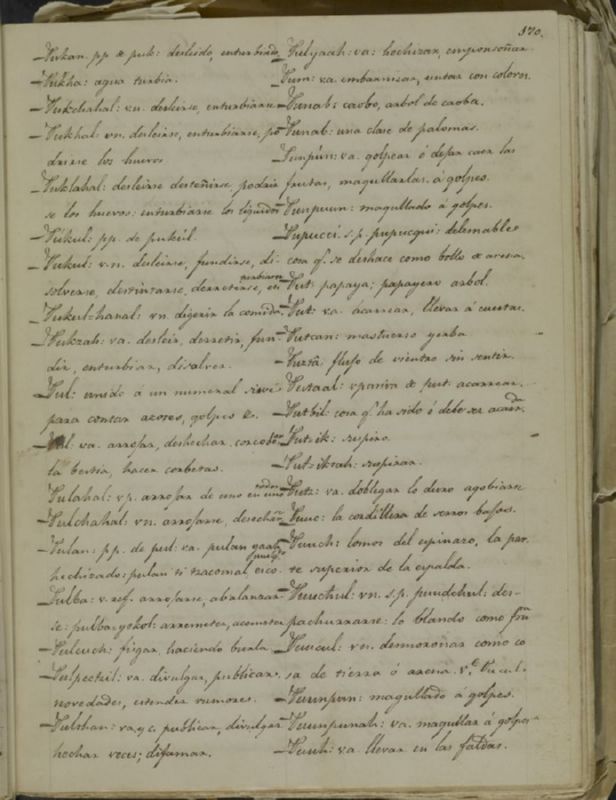 170.
Pukan. pp de puk: desleido, enturbiado
Pukha: agua turbia.
Pukchahal: vn. desleirse, enturbiarse
Pukhal vn. desleirse, enturbiarse, po
drirse los huevos
Puklahal: desleirse desteñirse, podrir
se los huevos: enturbiarse los liquidos
Pukul: pp. de pukul.
Pukul: v.n. desleirse, fundirse, di
solverse, derretirse, en
Pukul-hanal: vn. digerir la comida
Pukzah: va. desleir, derretir, fun
dir, enturbiar, disolver.
Pul: unido á un numeral sirve
para contar azotes, golpes &.
Pul: va. arrojar, deshechar,
la bestia, hacer corbetas.
Pulahal: vp. arrojar de uno en uno
Pulchahal: vn. arrojarse, desechar
Pulan: pp. de pul: va. pulan
hechizado: pulan ti
Pulba: v. ref. arrojarse, abalanzar
se: pulba-yokol: arremeter, acometer
Pulcuch: figar, haciendo burla.
Pulpectzil: va. divulgar, publicar
novedades, estender rumores.
Pulthan: va, y a. publicar, divulgar
hechar voces; difamar.
Pulyaah: va: hechizar, emponsoñar.
Pum: va. embarnisar, untar con colores.
Punab: caobo, arbol de caoba.
Punab: una clase de palomas.
Punpun: va. golpear ó dejar caer las
frutas, magullarlas á golpes.
Punpuun: magullado á golpes.
Pupucci. s.p. pupucqui: delesnable
cosa q.e se deshace como bollo de arena.
Put: papaya; papayero arbol.
Put: va. acarrear, llevar á cuestas.
Putcan: mastuerzo yerba
flujo de vientre sin sentir.
Putaal: vpasiva de put. acarrear.
Putbil: cosa q.e ha sido ó debe ser
Putzik: suspiro.
Putzikzah: suspirar.
va. doblegar lo duro agobiarse
Puuc: la cordillera de serros bajos.
Puuch: lomos del espinazo, la par
te superior de la espalda.
Puuchul: vn. s.p. puuchul: des
pachurrarse lo blando como
Puucul: vn. desmoronar como co
sa de tierra ó arena.
Puunpun: magullado á golpes.
Puunpunah: va. magullar á golpes
Puuh: va llevar en las faldas.